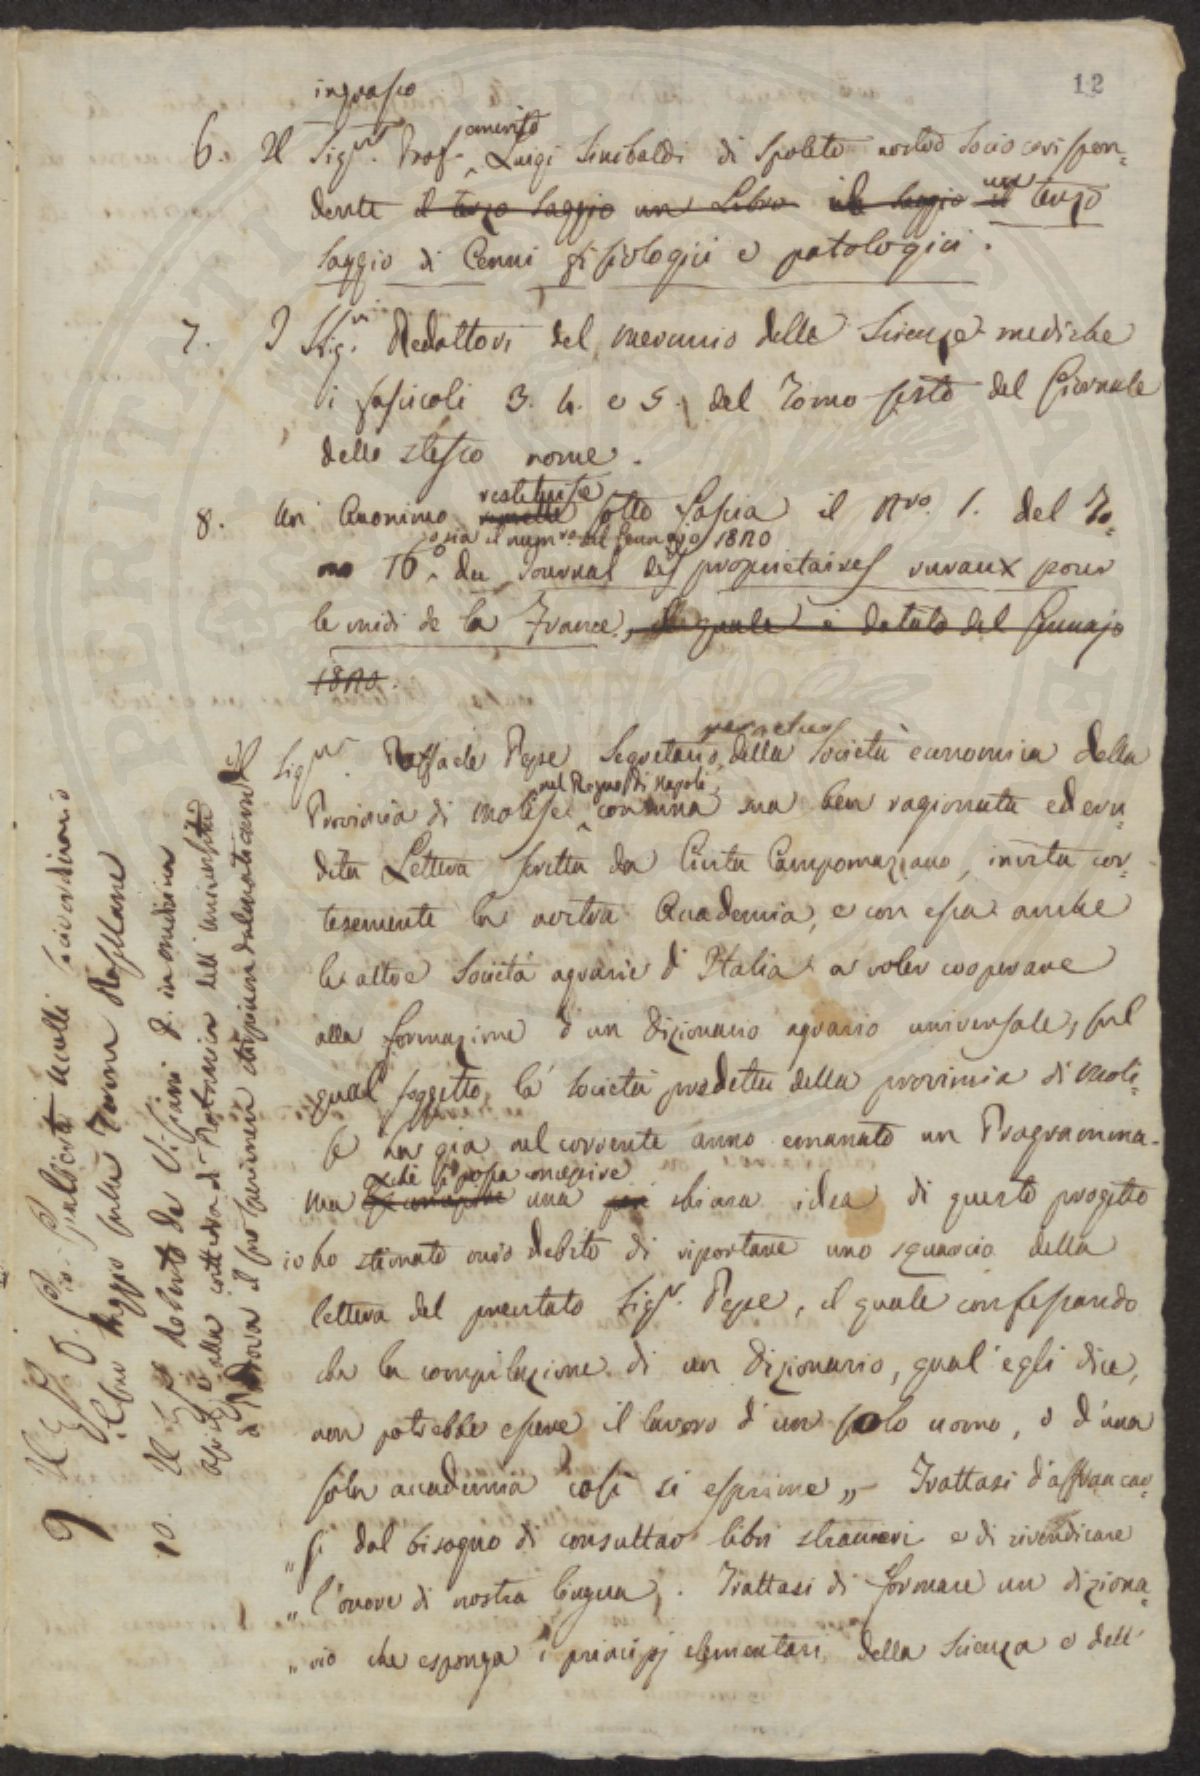 12
ingrasso
6. Il Sig.r Prof. emerito Luigi Sinibaldi di Spoleto nostro Socio corrispon=
dente il terzo Saggio un Libro il Saggio il un terzo
saggio di Cenni fisiologici e patologici.
7. I Sig.ri Redattori del mercurio delle Scienze mediche
i fascicoli 3. 4. e 5. del Tomo sesto del Giornale
dello stesso nome.
8. Un Anonimo restituisce sotto fascia il Nro. 1. del To=
ossia il numro. del Gennajo 1820
mo 16.° du Journal des proprietaires ruraux pour
le midi de la France, il quale è datato del Gennajo
1820.
Il Sig.r Raffaele Pepe Segretario perpetuo della Società economica della
Provincia di Molise nel Regno di Napoli, con una sua ben ragionata ed eru=
dita Lettera scritta da Civita Campomarano, invita cor=
tesemente la nostra Accademia, e con essa anche
le altre Società agrarie d'Italia a voler cooperare
alla formazione d'un dizionario agrario universale, sul
qual soggetto la Società predetta della provincia di Moli=
se ha già nel corrente anno emanato un Programma.
Ma perchè si possa concepire una più chiara idea di questo progetto
io ho stimato mio debito di riportare uno squarcio della
lettera del precitato Sig.r Pepe, il quale confessando
che la compilazione di un Dizionario, qual'egli dice,
non potrebbe essere il lavoro d'un solo uomo, o d'una
sola accademia così si esprime „ Trattasi d'affrancar=
„ si dal bisogno di consultar libri stranieri e di rivendicare
„ l'onore di nostra lingua. Trattasi di formare un diziona=
„ rio che esponga i principj elementari della Scienza e dell'
9. Il Sig. Prof. Gio. Socio ordinario
il suo Saggio sulla Rossmane
10. Il Sig. Roberto de Visiani D. in medicina
alla cattedra di Botanica dell'università
di Padova il suo specimen stirpium dalmaticarum